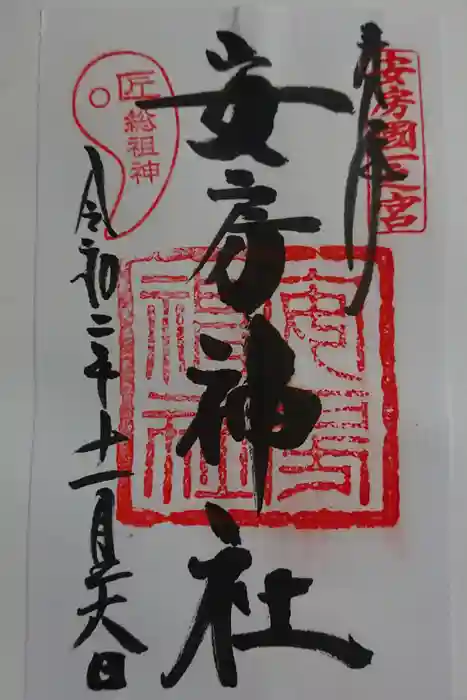 安房國一之宮
奉拝
安房神社
安房神社
匠総祖神
令和二年十一月日